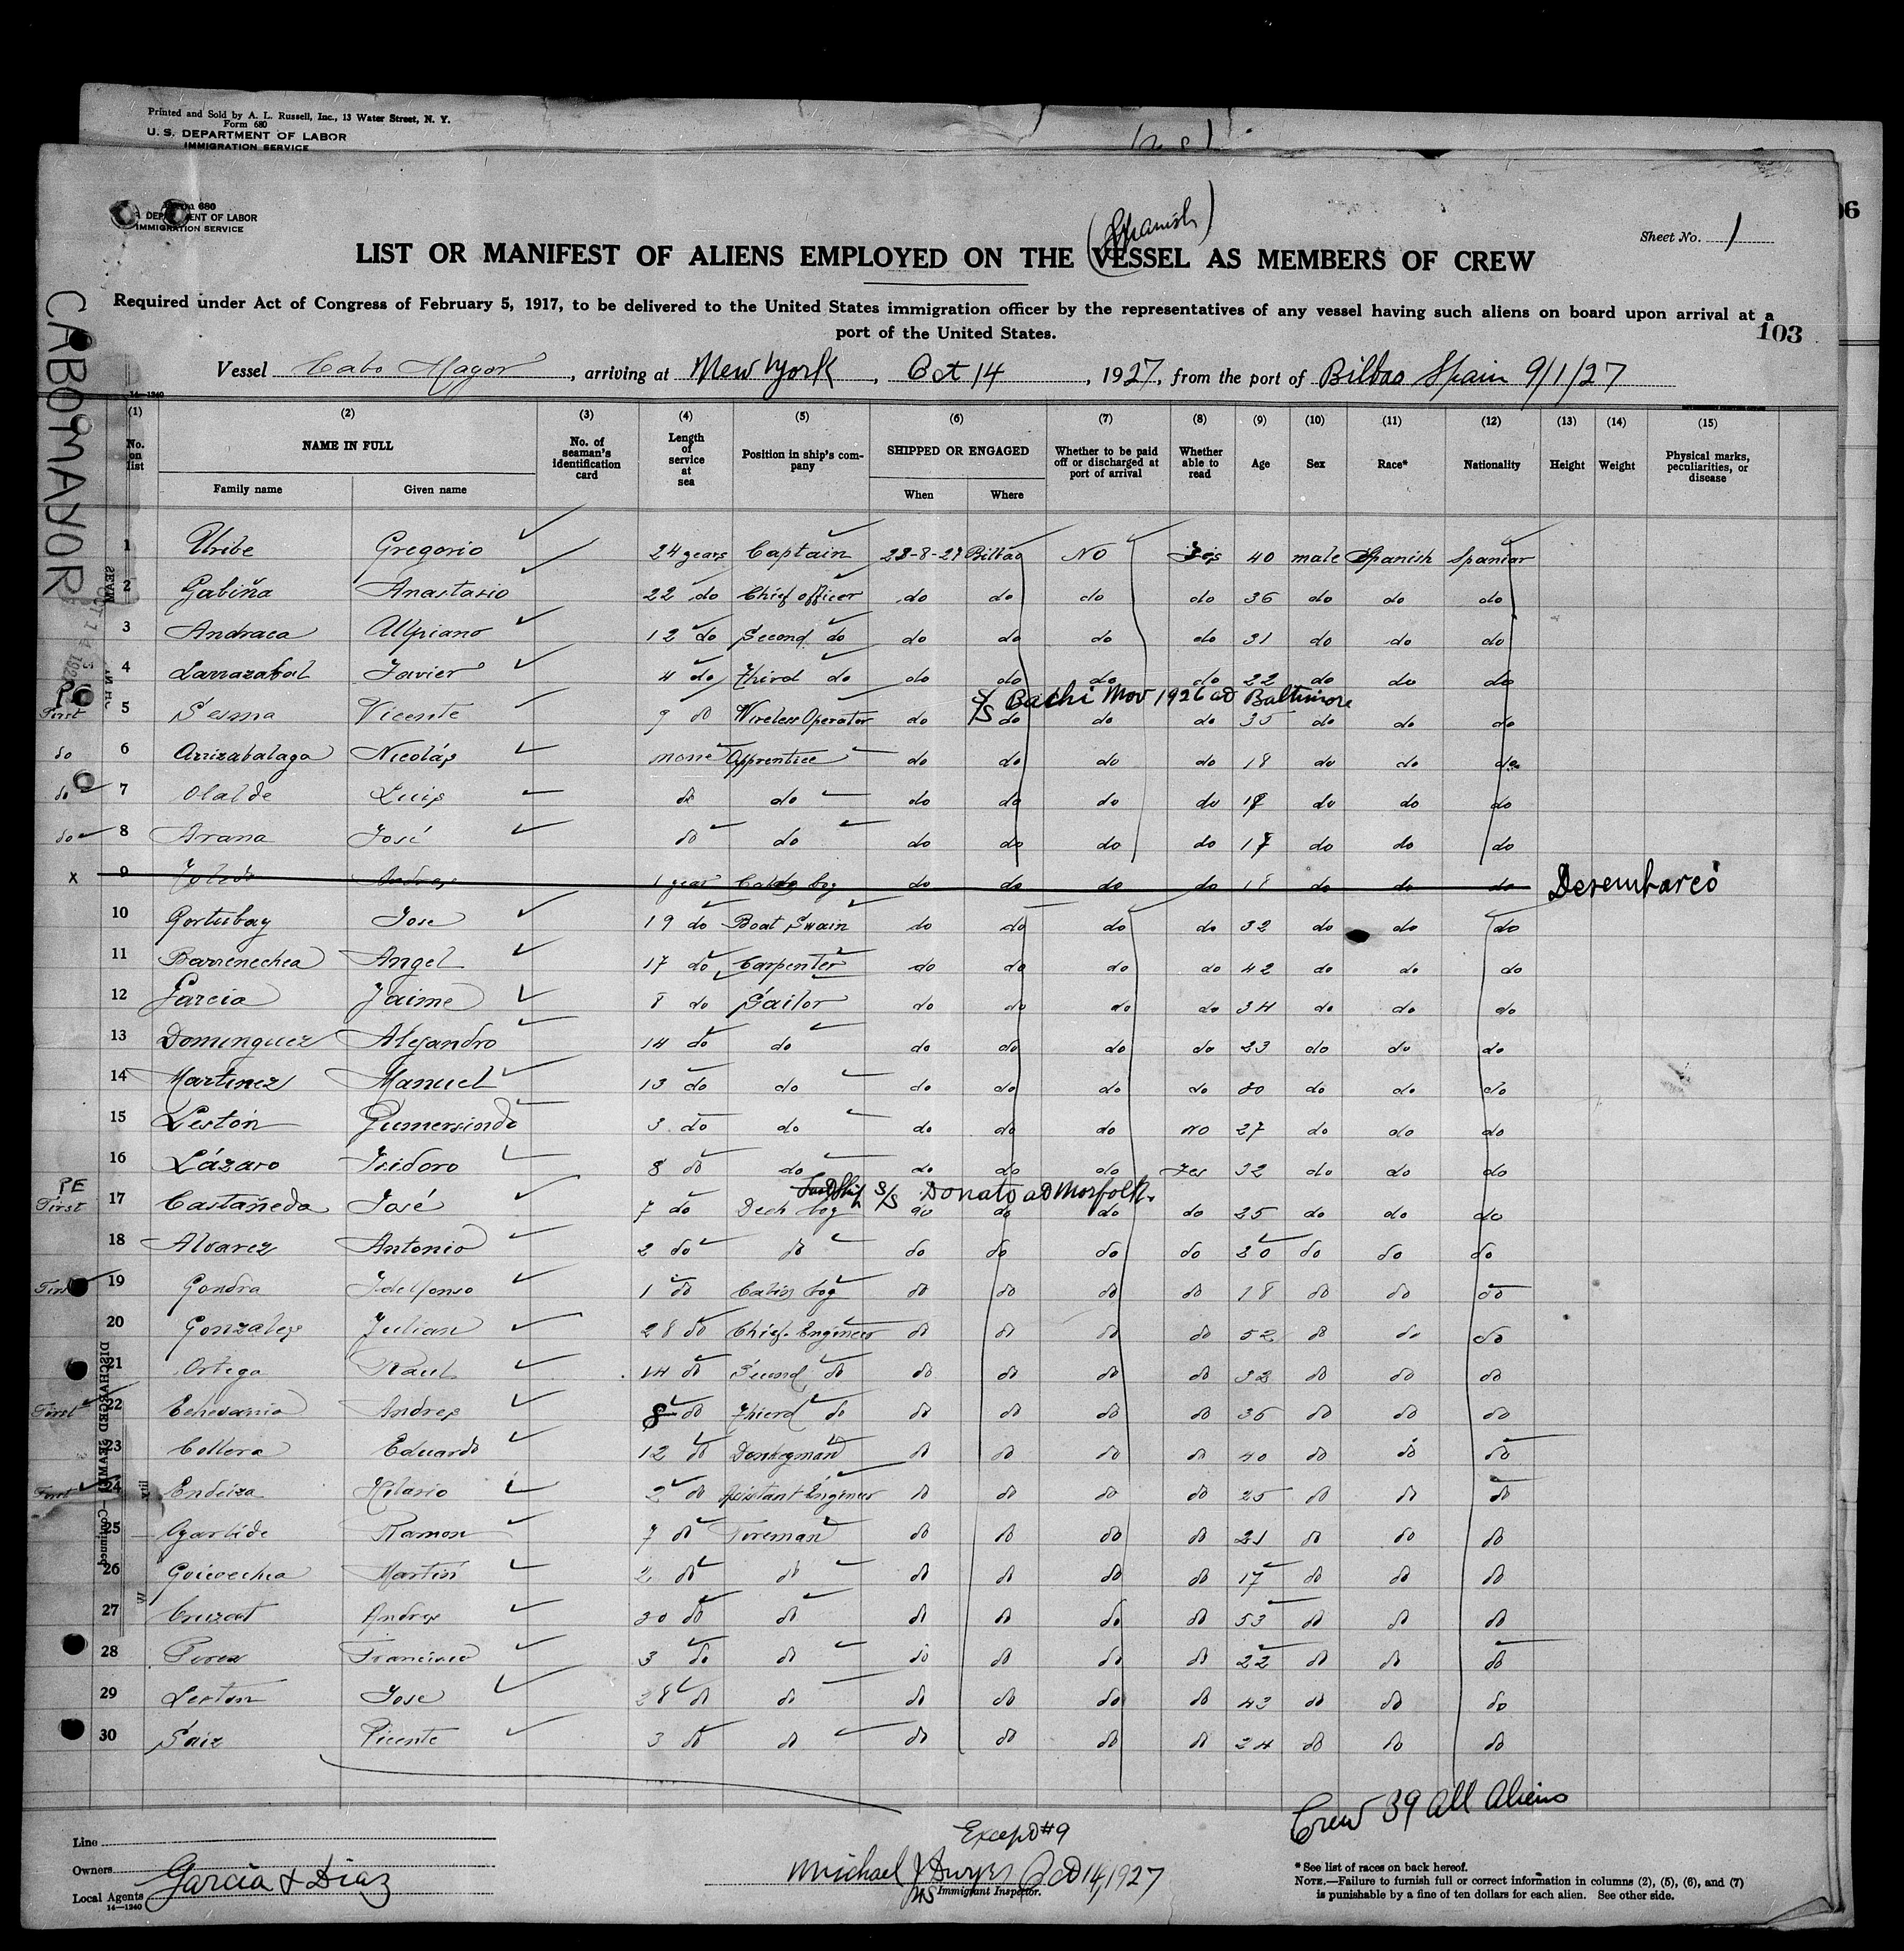 Printed and Sold by A. L. Russell, Inc., 13 Water Street, N. Y.
Form 680
U. S. DEPARTMENT OF LABOR
IMMIGRATION SERVICE
Form 680
DEPARTMENT OF LABOR
IMMIGRATION SERVICE
(Spanish)
Sheet No. 1
LIST OR MANIFEST OF ALIENS EMPLOYED ON THE VESSEL AS MEMBERS OF CREW
Required under Act of Congress of February 5, 1917, to be delivered to the United States immigration officer by the representatives of any vessel having such aliens on board upon arrival at a
port of the United States.
103
CABO MAYOR
Vessel Cabo Mayor, arriving at New York, Oct 14, 1927, from the port of Bilbao Spain 9/1/27
14—1240
(1) (2) (3) (4) (5) (6) (7) (8) (9) (10) (11) (12) (13) (14) (15)
No. on list NAME IN FULL No. of seaman's identification card Length of service at sea Position in ship's company SHIPPED OR ENGAGED Whether to be paid off or discharged at port of arrival Whether able to read Age Sex Race* Nationality Height Weight Physical marks, peculiarities, or disease
Family name Given name When Where
1 Uribe Gregorio 24 years Captain 23-8-27 Bilbao No Yes 40 male Spanish Spaniar
2 Gabiña Anastasio 22 do Chief officer do do do do 36 do do do
3 Andraca Ulpiano 12 do Second do do do do do 31 do do do
4 Larrazabal Javier 4 do Third do do do do do 22 do do do
S/S Bachi Nov 1926 at Baltimore
First 5 Sesma Vicente 9 do Wireless Operator do do do do 35 do do do
do 6 Arrizabalaga Nicolás none Apprentice do do do do 18 do do do
do 7 Olalde Luis do do do do do do do do do
do 8 Arana José do do do do do do 17 do do do
x 9 Toledo Andres 1 year do do do do 18 do do do Desembarcó
10 Gortubay Jose 19 do Boat Swain do do do do 32 do do do
11 Barrenechea Angel 17 do Carpenter do do do do 42 do do do
12 Garcia Jaime 8 do Sailor do do do do 34 do do do
13 Dominguez Alejandro 14 do do do do do do 23 do do do
14 Martinez Manuel 13 do do do do do do do do do
15 Lestón Gumersindo 3 do do do do do no 27 do do do
16 Lázaro Isidoro 8 do do do do do Yes 32 do do do
PE S/S Donato at Norfolk.
First 17 Castañeda José 7 do Deck boy do do do do 25 do do do
18 Alvarez Antonio 2 do do do do do do 30 do do do
First 19 Gondra Idelfonso 1 do Cabin boy do do do do 18 do do do
20 Gonzalez Julian 28 do Chief Engineer do do do do 52 do do do
21 Ortega Raul 14 do Second do do do do do 32 do do do
First 22 Echevarria Andres 8 do Thierd do do do do do 36 do do do
23 Collera Eduardo 12 do Donkeyman do do do do 40 do do do
First 24 Endeiza Hilario 2 do Asistant Engineer do do do do 25 do do do
25 Ramon 7 do Fireman do do do do 21 do do do
26 Goicoechea Martin 2 do do do do do do 17 do do do
27 Cruzat Andres do do do do do do 53 do do do
28 Perez Francisco 3 do do do do do do 22 do do do
29 Leston Jose 28 do do do do do do 43 do do do
30 Saiz Vicente 3 do do do do do do 24 do do do
DISCHARGED SEAMEN—Continued
Crew 39 all aliens
Except #9
Michael J Dwyer Oct 14, 1927
Immigrant Inspector.
Line
Owners
Local Agents Garcia & Diaz
14—1240
* See list of races on back hereof.
NOTE.—Failure to furnish full or correct information in columns (2), (5), (6), and (7)
is punishable by a fine of ten dollars for each alien. See other side.